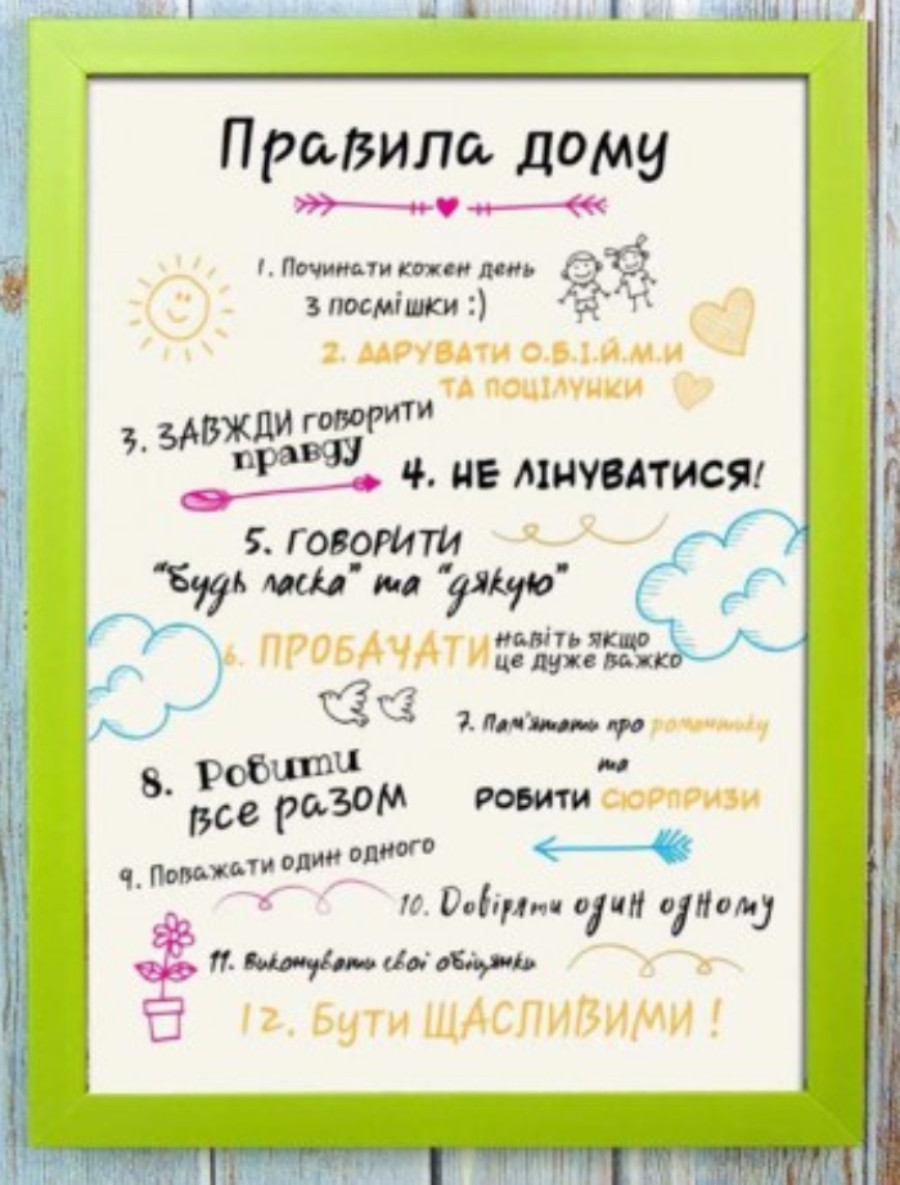 Правила дому
1. Починати кожен день
з посмішки :)
2. ДАРУВАТИ О.Б.І.Й.М.И
ТА ПОЦІЛУНКИ
3. ЗАВЖДИ говорити
правду
4. НЕ ЛІНУВАТИСЯ!
5. ГОВОРИТИ
"будь ласка" та "дякую"
6. ПРОБАЧАТИ навіть якщо
це дуже важко
7. Пам'ятати про романтику
та
РОБИТИ СЮРПРИЗИ
8. Робити
все разом
9. Поважати один одного
10. Довіряти один одному
11. Виконувати свої обіцянки
12. Бути ЩАСЛИВИМИ !